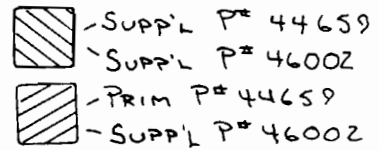 - SUPP'L P# 44659
- SUPP'L P# 46002
- PRIM P# 44659
- SUPP'L P# 46002